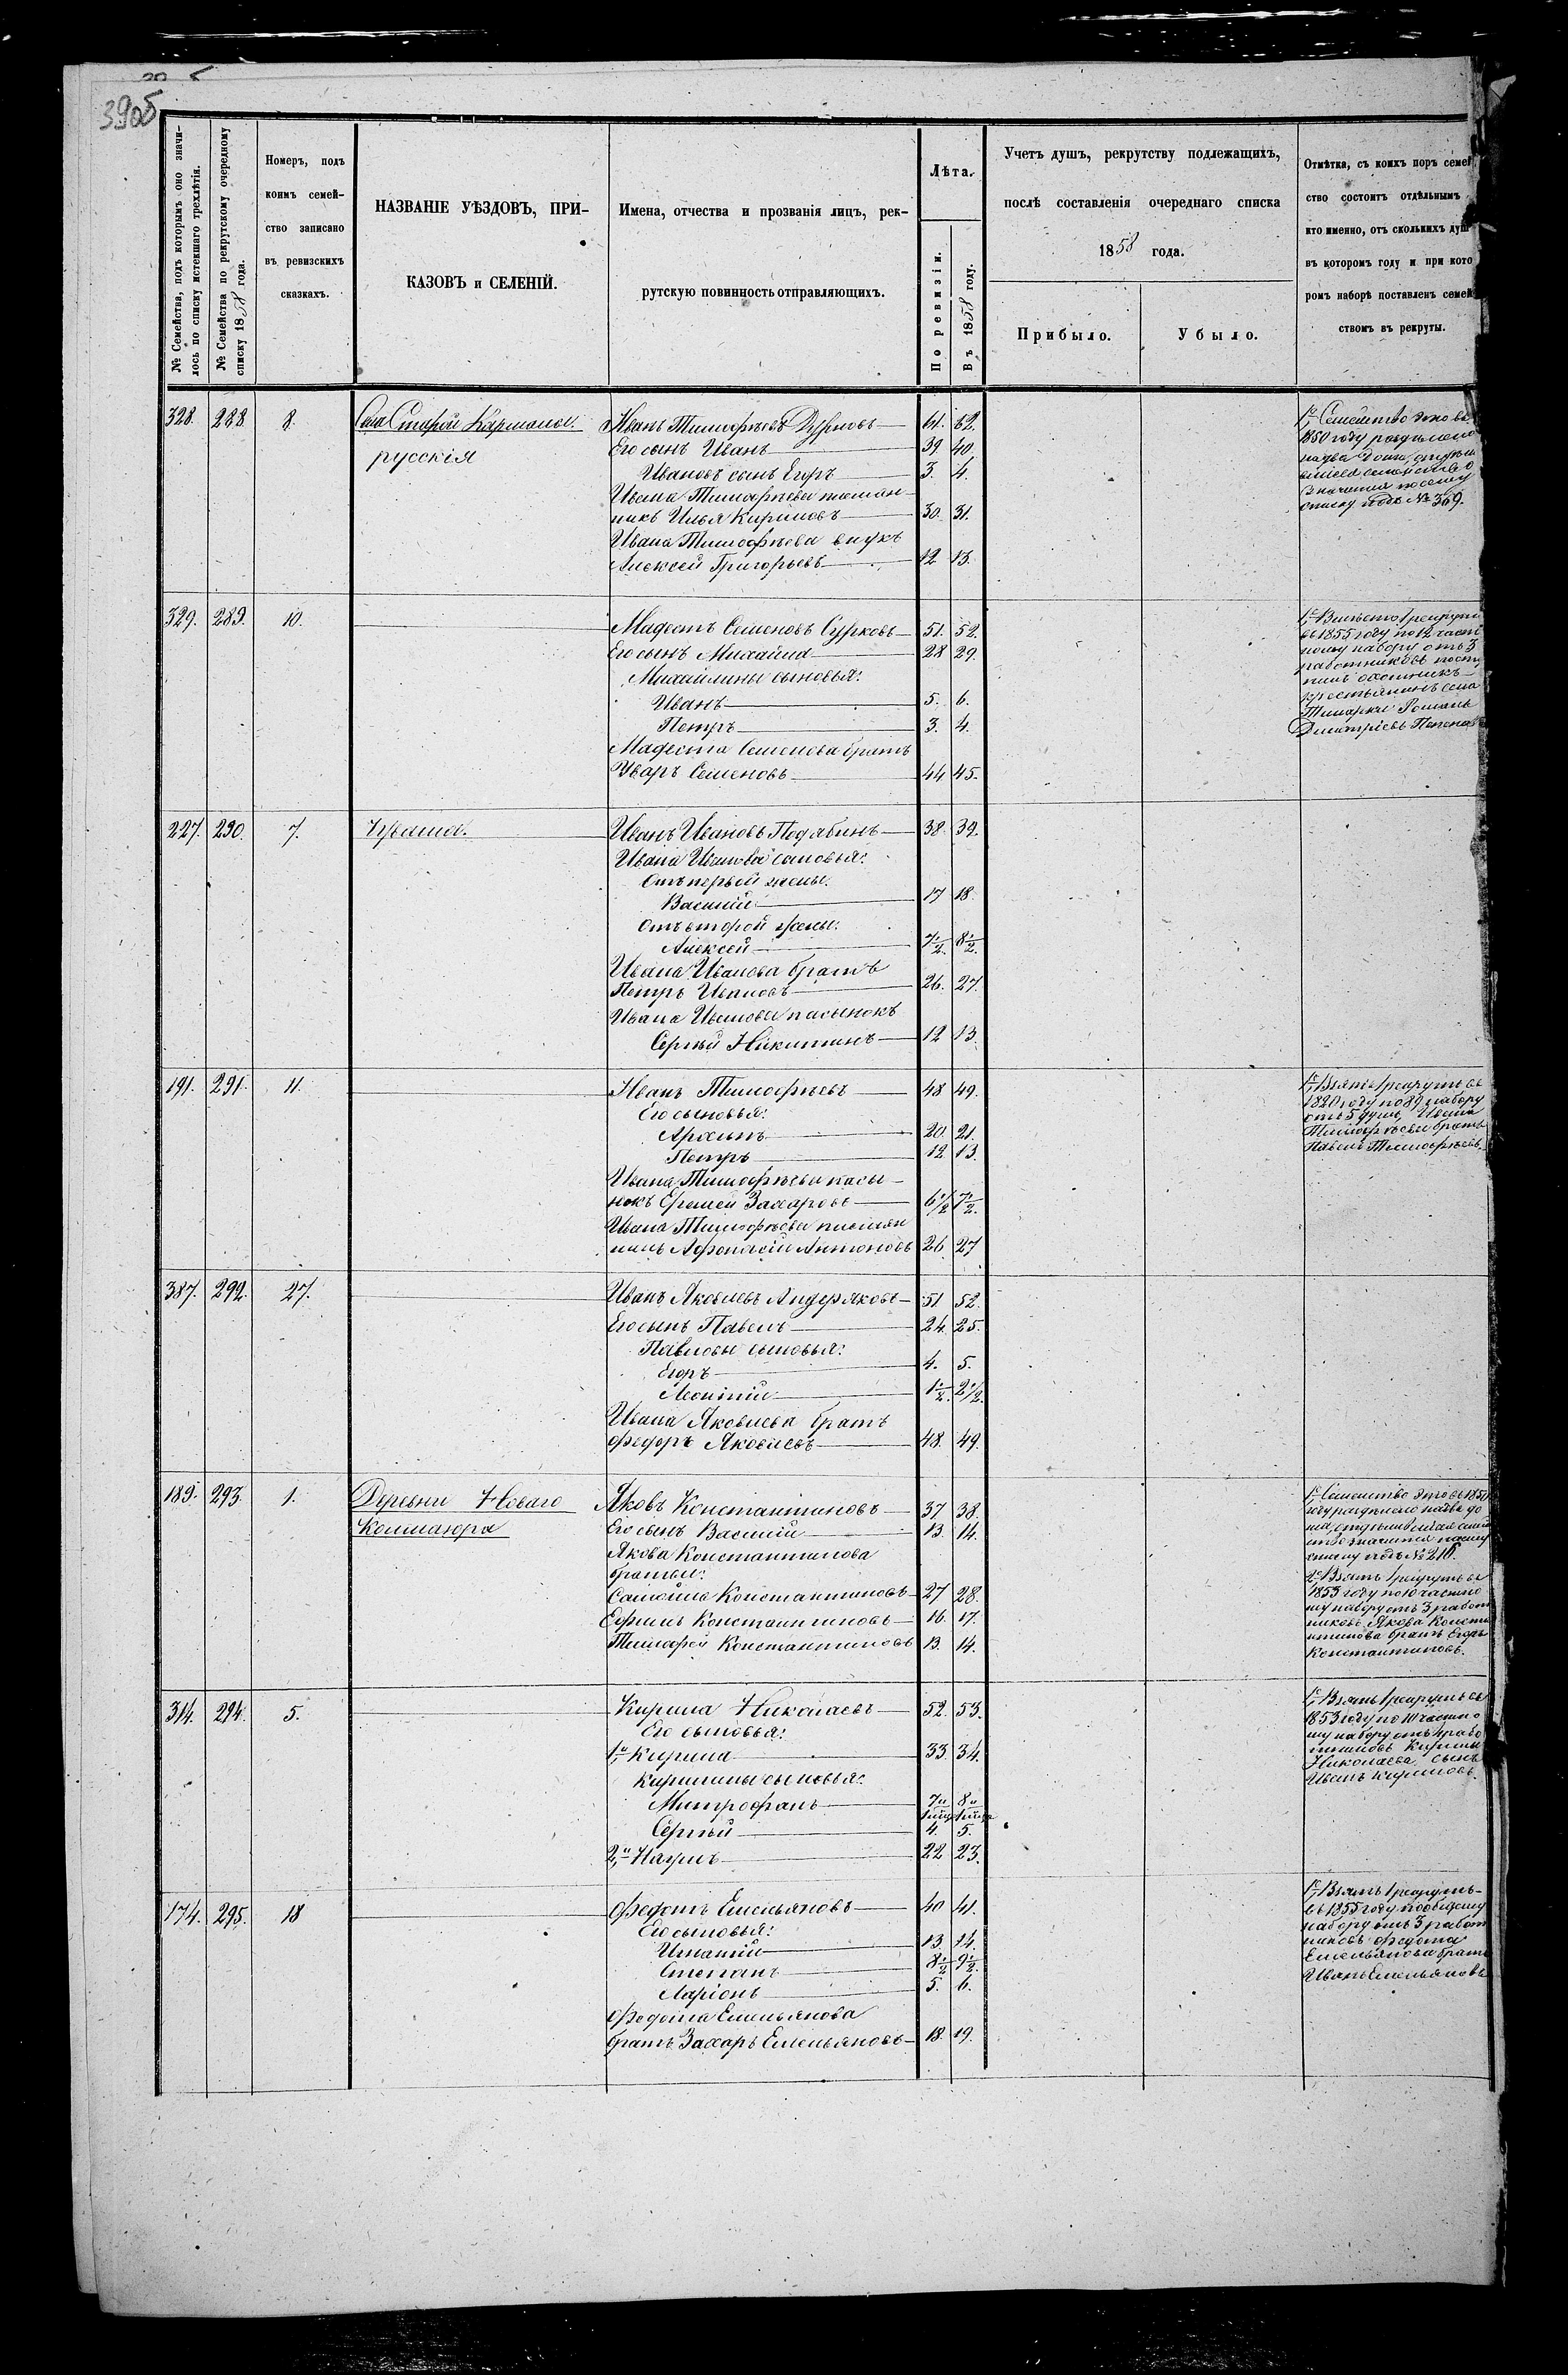 3905
№ Семейства, подъ которымъ оно значи-
лось по списку истекшаго трехлѣтія.
№ Семейства по рекрутскому очередному
списку 1858 года.
Номеръ, подъ
коимъ семей-
ство записано
въ ревизскихъ
сказкахъ.
НАЗВАНІЕ УѢЗДОВЪ, ПРИ-
КАЗОВЪ и СЕЛЕНІЙ.
Имена, отчества и прозванія лицъ, рек-
рутскую повинность отправляющихъ.
Лѣта.
По ревизіи.
Въ 1858 году.
Учетъ душъ, рекрутству подлежащихъ,
послѣ составленія очереднаго списка
1858 года.
Прибыло.
Убыло.
Отмѣтка, съ коихъ поръ семей
ство состоитъ отдѣльнымъ
кто именно, отъ сколькихъ душ
въ которомъ году и при кото
ромъ наборѣ поставленъ семей
ствомъ въ рекруты.
328. 288 8. Села Старой Кармалы. Иванъ Тимофѣевъ Дурновъ 61. 62.
русскія Его сынъ Иванъ 39 40.
Ивановъ сынъ Егоръ 3. 4.
Ивана Тимофѣева племян-
никъ Илья Кириловъ 30. 31.
Ивана Тимофѣева внукъ
Алексей Григорьевъ 12 13.
1е, Семейство это въ
1850 году раздѣлено
на два дома, отдѣли
вшееся семейство
значится по сему
списку подъ № 369.
329. 289. 10. Мадестъ Семеновъ Сурковъ 51. 52.
Его сынъ Михайла 28 29.
Михайлины сыновья:
Иванъ 5. 6.
Петръ 3. 4.
Мадеста Семенова братъ
Уваръ Семеновъ 44 45.
1е, Вместо 1 рекрута
въ 1855 году по 12 част
ному набору отъ 3
работниковъ посту
пилъ охотникъ
крестьянинъ села
Романъ
Дмитріевъ
227. 290. 7. Чуваша. Иванъ Ивановъ Подябинъ 38. 39.
Ивана Иванова сыновья:
Отъ первой жены:
Василий 17 18.
Отъ второй жены:
Алексей 7 1/2. 8 1/2.
Ивана Иванова братъ
Петръ Ивановъ 26. 27.
Ивана Иванова пасынокъ
Сергѣй Никитинъ 12 13.
191. 291. 11. Иванъ Тимофѣевъ 48 49.
Его сыновья:
20. 21.
Петръ 12. 13.
Ивана Тимофѣева пасы-
нокъ Еремей Захаровъ 6 1/2 7 1/2.
Ивана Тимофѣева племян
никъ Афонасій Антоновъ 26 27
1е, Взятъ 1 рекрутъ въ
1820 году по 89 набору
отъ 5 душъ, Ивана
Тимофѣева братъ
Павелъ Тимофѣевъ.
387. 292. 27. Иванъ Яковлевъ Андеряковъ 51 52.
Его сынъ Павелъ 24. 25.
Павловы сыновья:
Егоръ 4. 5.
Леонтій 1 1/2. 2 1/2.
Ивана Яковлева братъ
Федоръ Яковлевъ 48. 49.
189. 293. 1. Деревни Новаго Яковъ Константиновъ 37. 38.
Колмаюра Его сынъ Василій 13. 14.
Якова Константинова
братья:
Самойла Константиновъ 27 28.
Ефимъ Константиновъ 16. 17.
Тимофей Константиновъ 13. 14.
1е, Семейство это въ 1850
году раздѣлено на два до
ма, отделившееся семей
ство значится по сему
списку подъ № 216.
2е, Взятъ 1 рекрутъ въ
1853 году по 10 частно
му набору отъ 3 работ
никовъ Якова Конста
нтинова братъ Егоръ
Константиновъ.
314. 294. 5. Кирила Николаевъ 52. 53.
Его сыновья:
1й, Кирила 33. 34.
Кирилины сыновья:
Митрофанъ 7и 8и
Сергѣй 4. 5.
2й, 22 23.
1е, Взятъ 1 рекрутъ въ
1853 году по 10 частно
му набору отъ 4 рабо
тниковъ Кирилы
Николаева сынъ
Иванъ Кириловъ.
174. 295. 18 Федотъ Емельяновъ 40 41.
Его сыновья:
Игнатій 13. 14.
Степанъ 8 1/2 9 1/2.
Ларіонъ 5. 6.
Федота Емельянова
братъ Захаръ Емельяновъ 18. 19.
1е, Взятъ 1 рекрутъ-
въ 1855 году по общему
набору отъ 3 работ
никовъ Федота
Емельянова братъ
Иванъ Емельяновъ